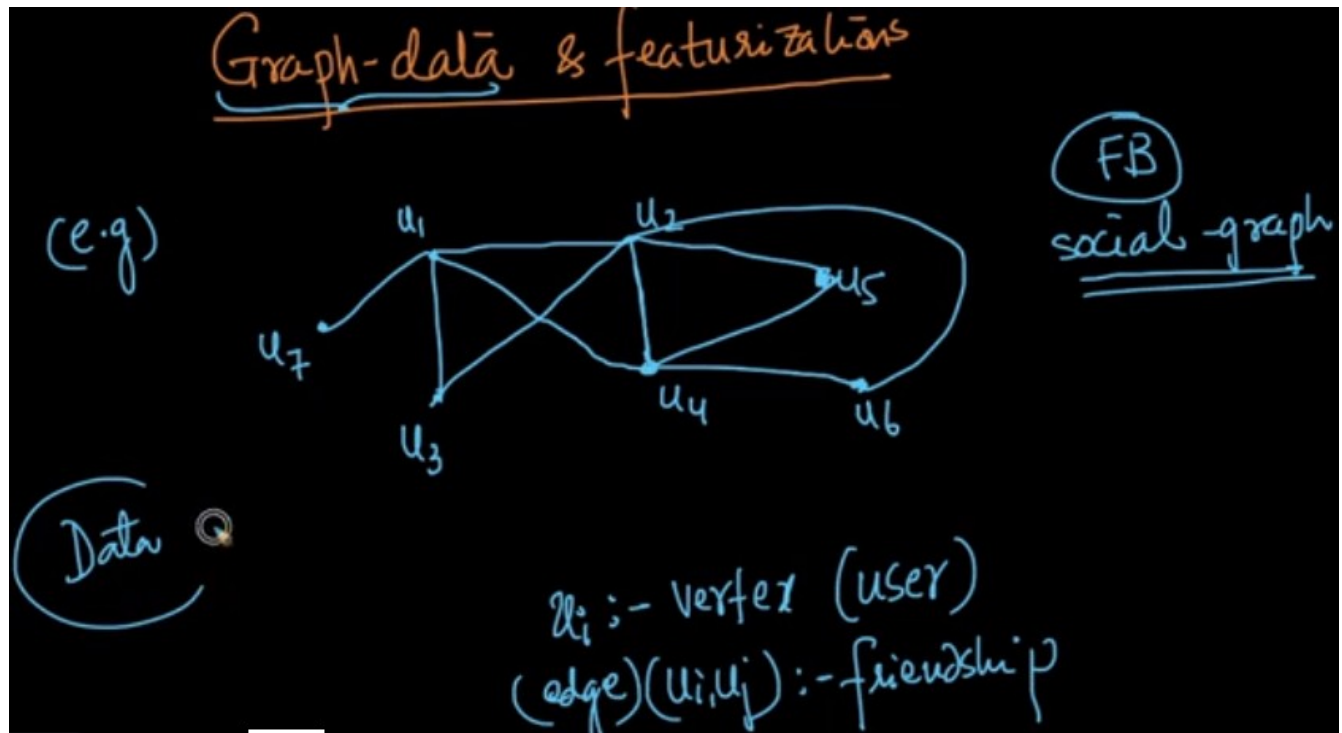 Graph-data & featurizations
FB
social-graph
(e.g)
u1
u2
u5
u7
u4
u6
u3
Data
ui :- vertex (user)
(edge)(ui,uj) :- friendship